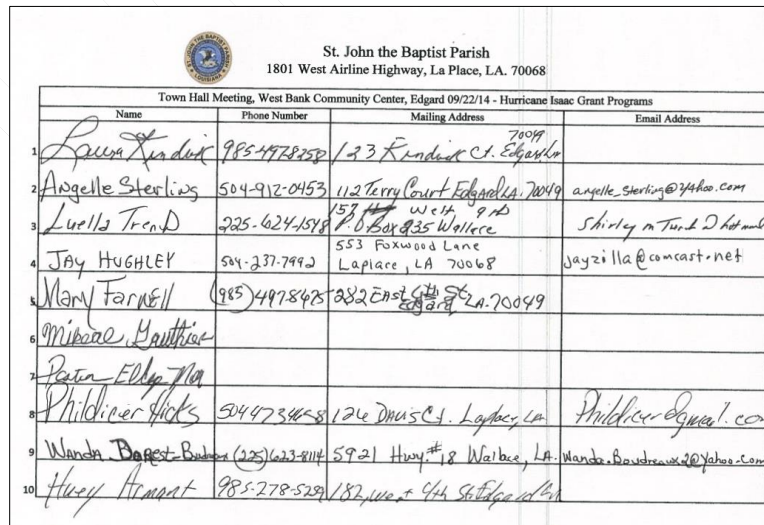 St. John the Baptist Parish
1801 West Airline Highway, La Place, LA. 70068
Town Hall Meeting, West Bank Community Center, Edgard 09/22/14 - Hurricane Isaac Grant Programs
Name Phone Number Mailing Address Email Address
70049
1 Laura Kindrik 985-4978258 123 Kindrik Ct. Edgard La
2 Angelle Sterling 504-912-0453 112 Terry Court Edgard LA. 70049 angelle_sterling@yahoo.com
157 West 9
3 Luella 225-624-1548 P.O Box 235 Wallace Shirley m
553 Foxwood Lane
4 JAY HUGHLEY 504-237-7992 Laplace, LA 70068 jayzilla@comcast.net
5 Mary Farnell (985) 4978675 282 East St. Edgard LA. 70049
6 Mikeal Gauthier
7 Pastor
8 Phildicer Hicks 504 4734658 126 Davis Ct. Laplace, LA Phildicer@gmail.com
9 Wanda (225) 623-8114 5921 Hwy #18 Wallace, LA. Wanda.Boudreaux2@yahoo.com
10 Huey Armant 985-278-5289 182, west 4th St. Edgard